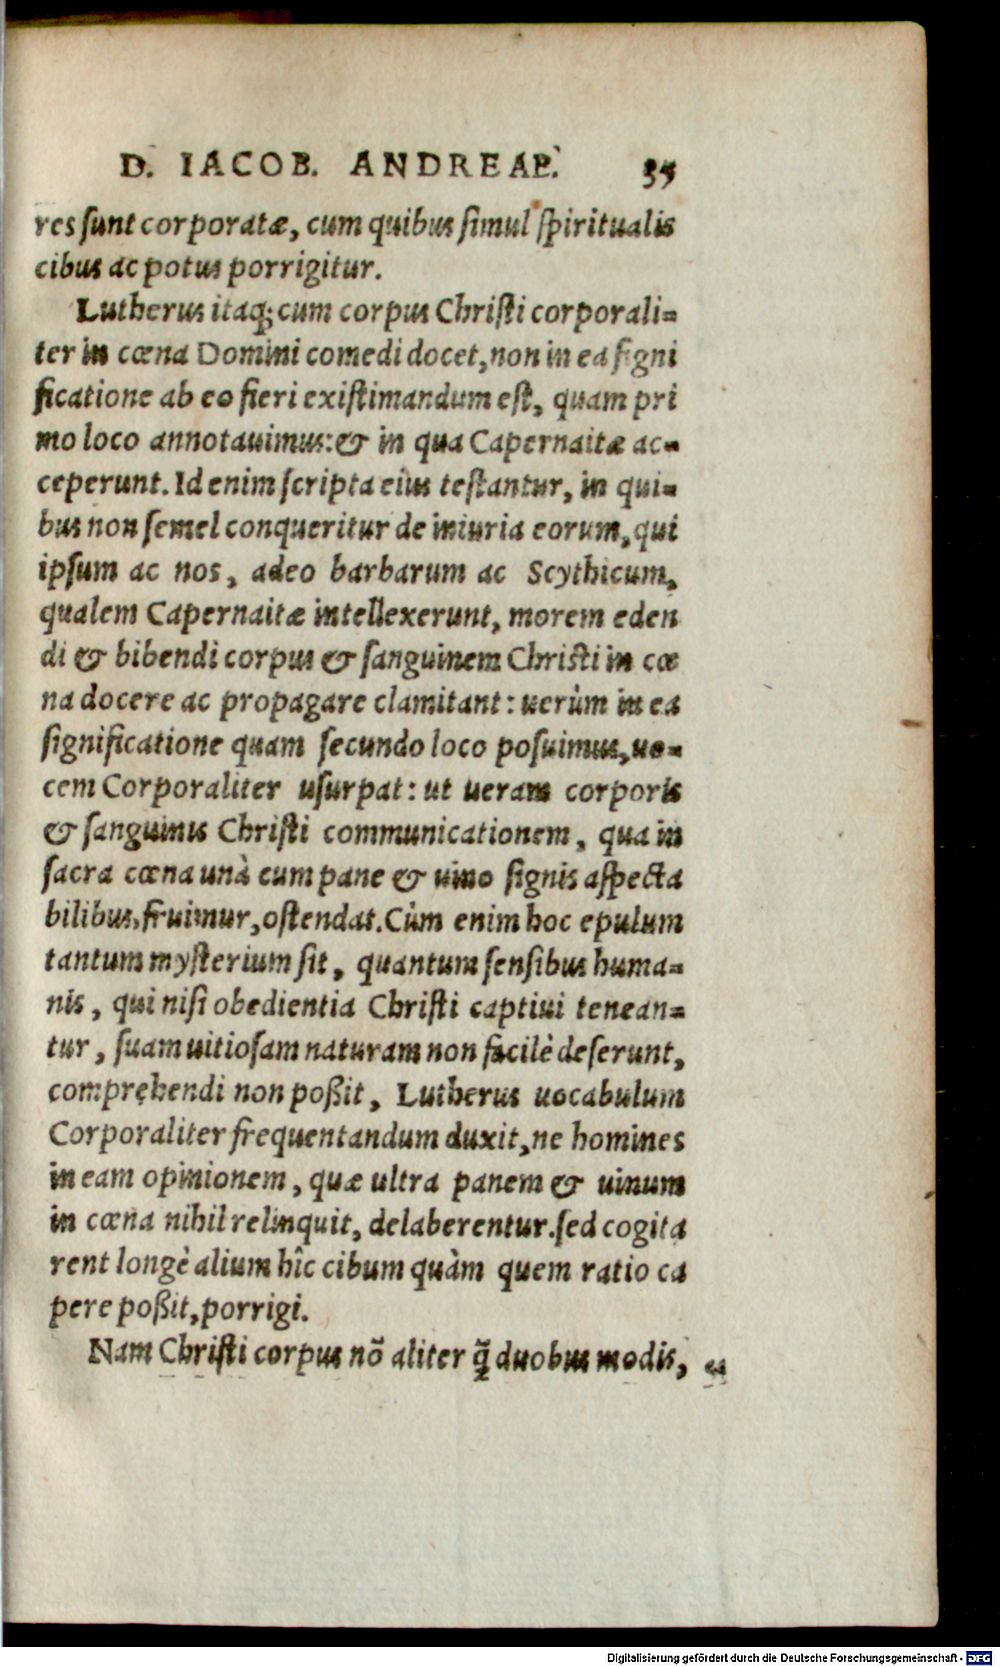 D. IACOB. ANDREAE. 35
res sunt corporatæ, cum quibus simul spiritualis
cibus ac potus porrigitur.
Lutherus itaq; cum corpus Christi corporali-
ter in cœna Domini comedi docet, non in ea signi
ficatione ab eo fieri existimandum est, quam pri
mo loco annotauimus: & in qua Capernaitæ ac-
ceperunt. Id enim scripta eius testantur, in qui-
bus non semel conqueritur de iniuria eorum, qui
ipsum ac nos, adeo barbarum ac Scythicum,
qualem Capernaitæ intellexerunt, morem eden
di & bibendi corpus & sanguinem Christi in cœ
na docere ac propagare clamitant: uerùm in ea
significatione quam secundo loco posuimus, uo-
cem Corporaliter usurpat: ut ueram corporis
& sanguinis Christi communicationem, qua in
sacra cœna unà cum pane & uino signis aspecta
bilibus, fruimur, ostendat. Cùm enim hoc epulum
tantum mysterium sit, quantum sensibus huma-
nis, qui nisi obedientia Christi captiui tenean-
tur, suam uitiosam naturam non facilè deserunt,
comprehendi non poßit, Lutherus uocabulum
Corporaliter frequentandum duxit, ne homines
in eam opinionem, quæ ultra panem & uinum
in cœna nihil relinquit, delaberentur. sed cogita
rent longè alium hîc cibum quàm quem ratio ca
pere poßit, porrigi.
Nam Christi corpus nõ aliter q̃ duobus modis,
Digitalisierung gefördert durch die Deutsche Forschungsgemeinschaft - DFG